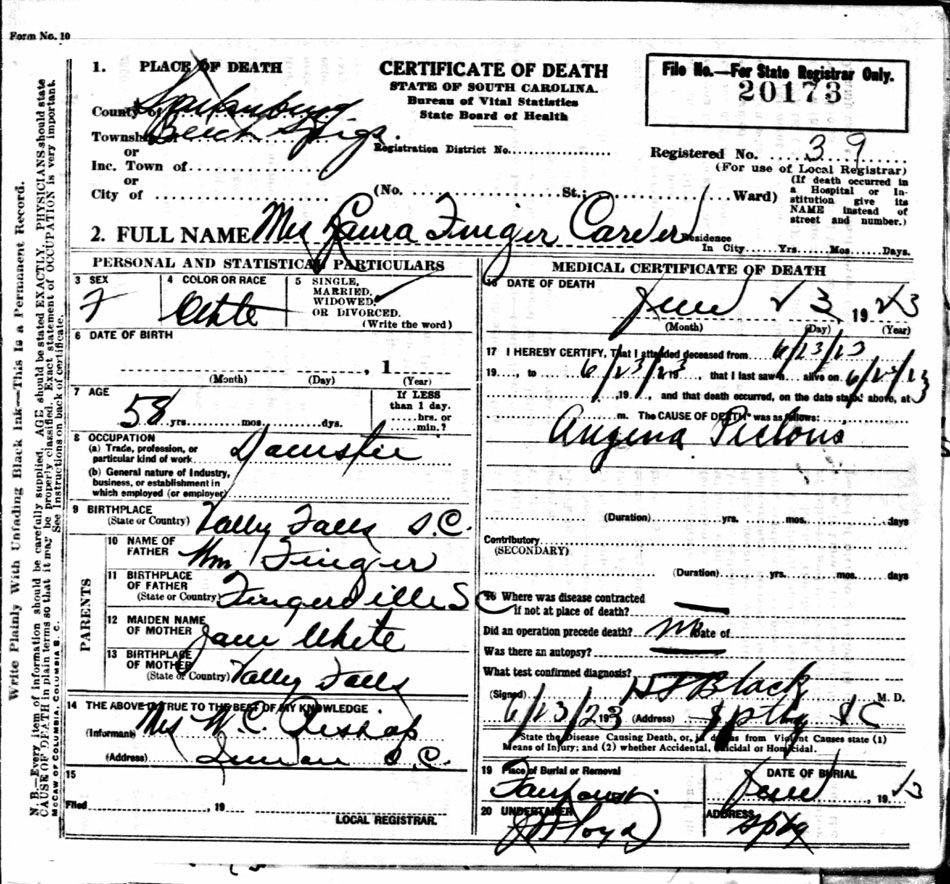 Form No. 10
1. PLACE OF DEATH
County of Spartanburg
Township Beech Spigs.
or
Inc. Town of
or
City of
CERTIFICATE OF DEATH
STATE OF SOUTH CAROLINA.
Bureau of Vital Statistics
State Board of Health
Registration District No.
File No.—For State Registrar Only.
20173
Registered No. 39
(For use of Local Registrar)
(No. St.; Ward)
(If death occurred in
a Hospital or In-
stitution give its
NAME instead of
street and number.)
2. FULL NAME Mrs Laura Finger Carver
Residence
In City Yrs. Mos. Days.
PERSONAL AND STATISTICAL PARTICULARS
3 SEX
F
4 COLOR OR RACE
White
5 SINGLE,
MARRIED,
WIDOWED,
OR DIVORCED.
(Write the word)
6 DATE OF BIRTH
, 1
(Month) (Day) (Year)
7 AGE
58 yrs. mos. dys.
If LESS
than 1 day.
hrs. or
min.?
8 OCCUPATION
(a) Trade, profession, or
particular kind of work
(b) General nature of Industry,
business, or establishment in
which employed (or employer)
9 BIRTHPLACE
(State or Country) Vally Falls S.C.
PARENTS
10 NAME OF
FATHER Wm Finger
11 BIRTHPLACE
OF FATHER
(State or Country) Fingerville S C
12 MAIDEN NAME
OF MOTHER Jane White
13 BIRTHPLACE
OF MOTHER
(State or Country) Vally Falls
14 THE ABOVE IS TRUE TO THE BEST OF MY KNOWLEDGE
(Informant) Mrs W.C. Bishop
(Address) Inman S.C.
15
Filed , 19
LOCAL REGISTRAR.
MEDICAL CERTIFICATE OF DEATH
16 DATE OF DEATH
June 23, 1923
(Month) (Day) (Year)
17 I HEREBY CERTIFY, That I attended deceased from 6/23/23
19 , to 6/23/23 19 , that I last saw h alive on 6/23/23
, 19 , and that death occurred, on the date stated above, at
m. The CAUSE OF DEATH was as follows:
Angina Pectoris
(Duration) yrs. mos. days
Contributory
(SECONDARY)
(Duration) yrs. mos. days
18 Where was disease contracted
if not at place of death?
Did an operation precede death? no Date of
Was there an autopsy?
What test confirmed diagnosis?
(Signed) Black M. D.
6/23/23 19 (Address) Sptbg S C
State the Disease Causing Death, or, in deaths from Violent Causes state (1)
Means of Injury; and (2) whether Accidental, Suicidal or Homicidal.
19 Place of Burial or Removal
DATE OF BURIAL
June , 1923
20 UNDERTAKER
Floyd
ADDRESS
Sptbg
Write Plainly With Unfading Black Ink—This Is a Permanent Record.
N. B.—Every item of information should be carefully supplied. AGE should be stated EXACTLY. PHYSICIANS should state
CAUSE OF DEATH in plain terms so that it may be properly classified. Exact statement of OCCUPATION is very important.
See Instructions on back of certificate.
McCAW OF COLUMBIA, COLUMBIA S. C.